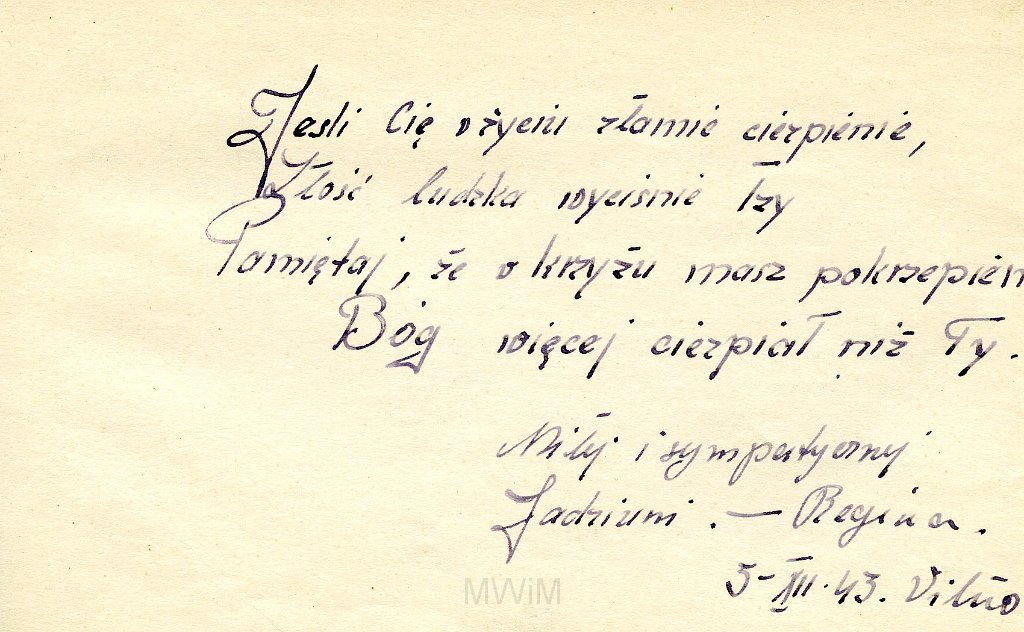 Jesli Cię w życiu złamie cierpienie,
Złość ludzka wyciśnie łzy
Pamiętaj, że w krzyżu masz pokrzepien
Bóg więcej cierpiał niż Ty.
Miłej i sympatycznej
Jadziuni. — Regina.
5-XII.43. Vilno
MWiM